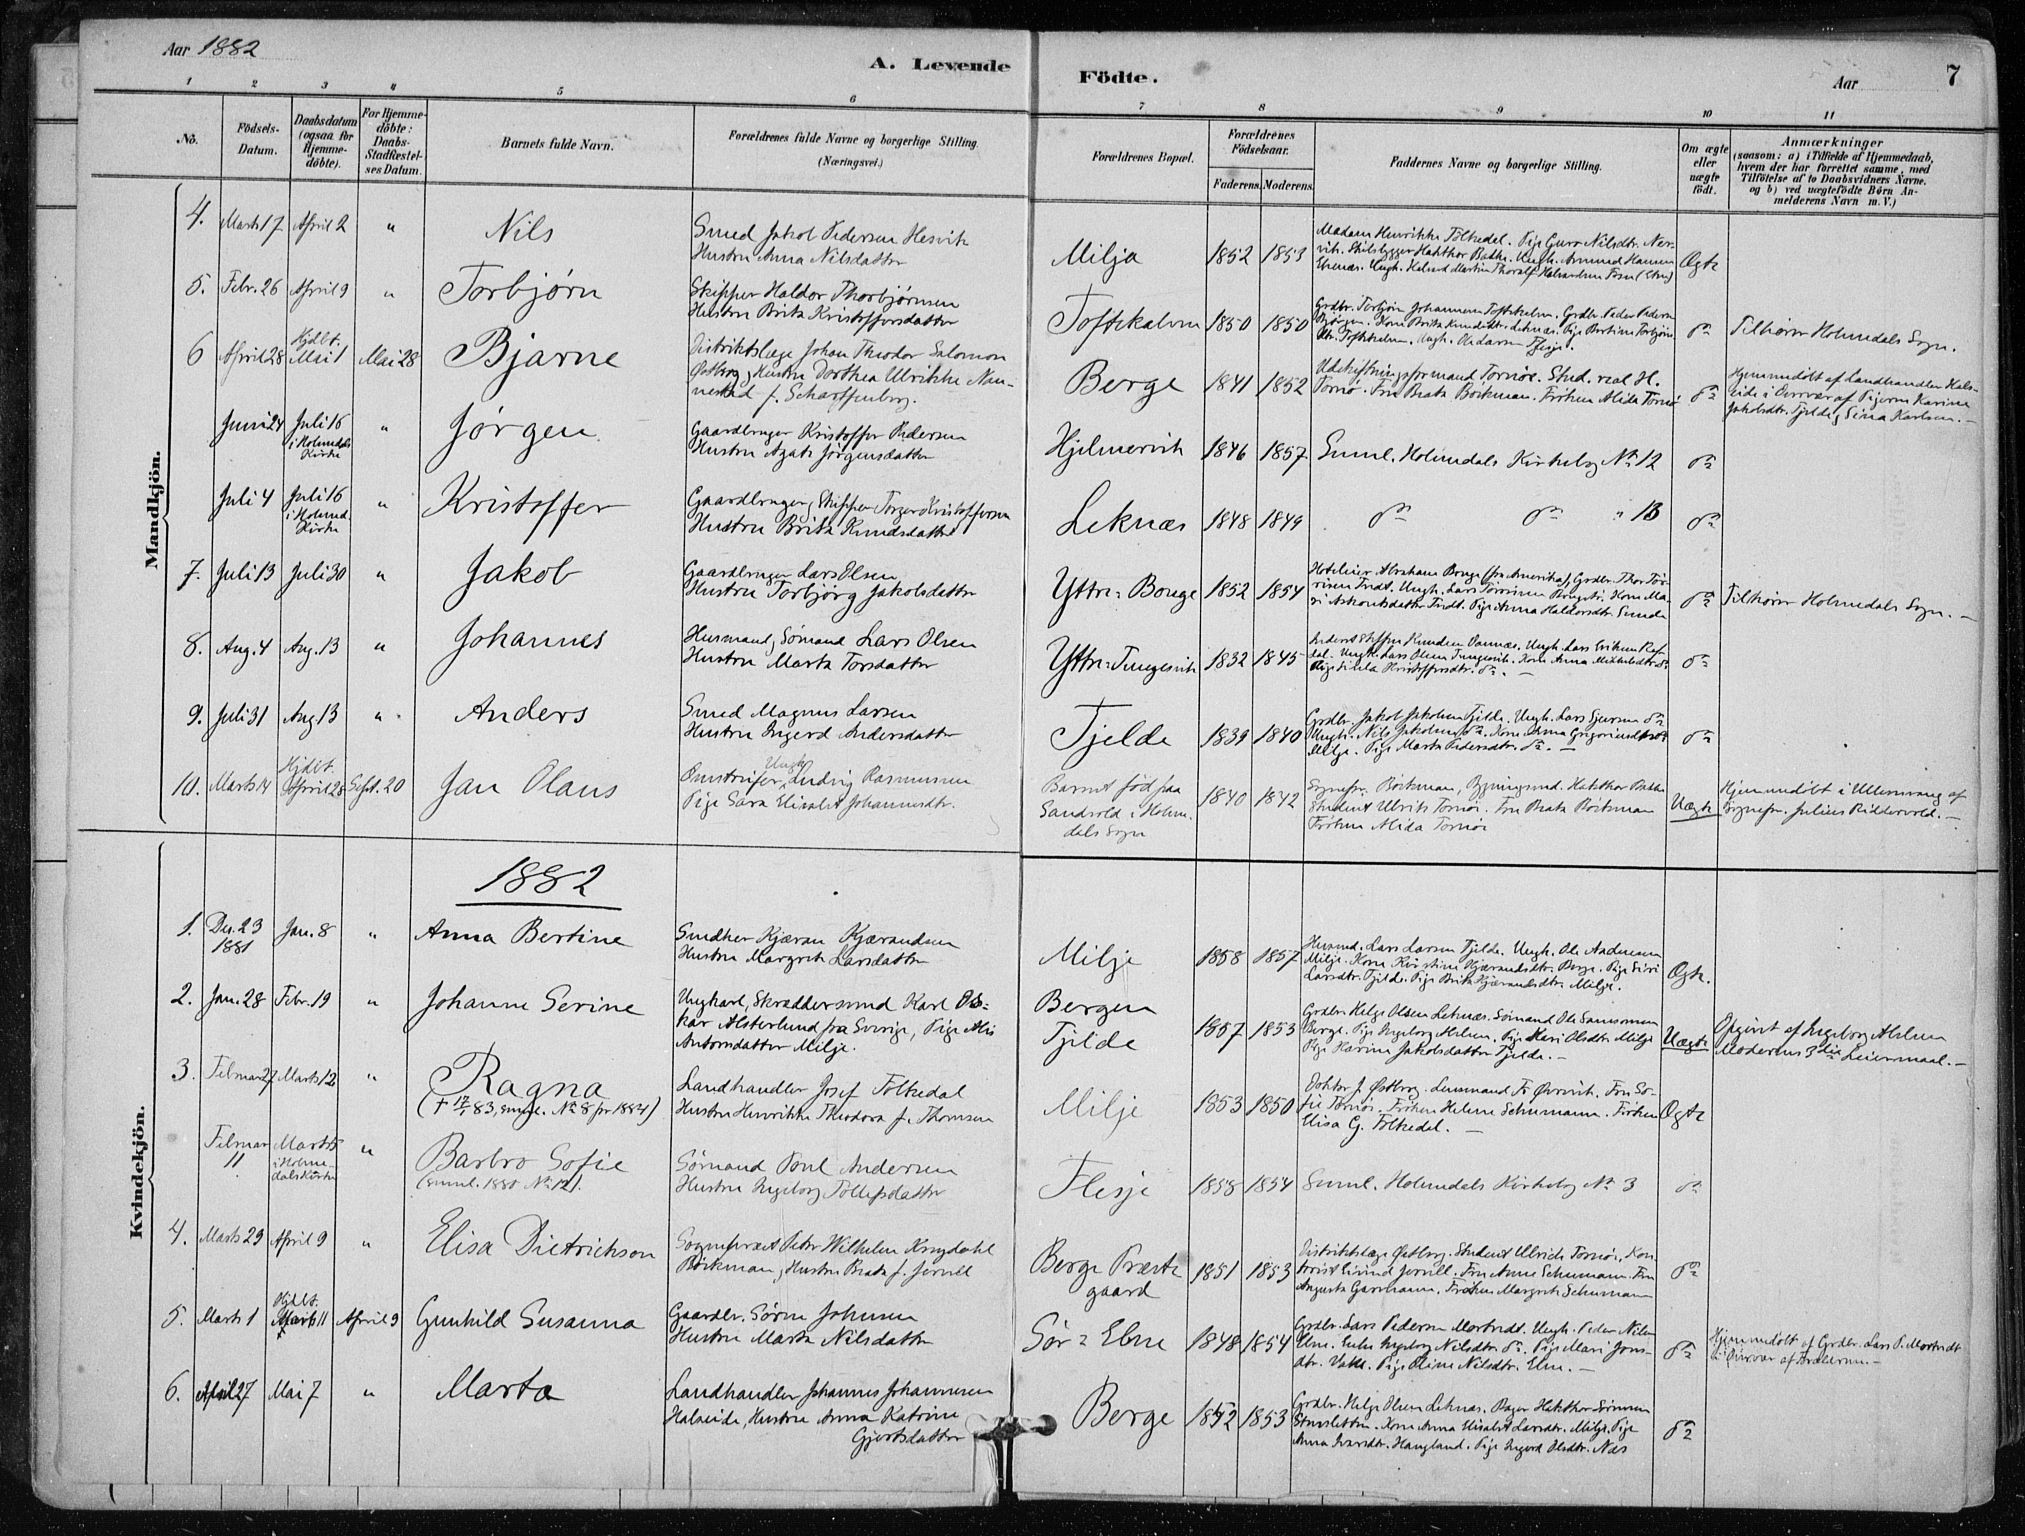 Aar 1882
A. Levende
Födte.
Aar
7
1 2 3 4 5 6 7 8 9 10 11
No.
Födsels-
Datum.
Daabsdatum
(ogsaa for
Hjemme-
döbte).
For Hjemme-
döbte:
Daabs-
Stadfæstel-
ses Datum.
Barnets fulde Navn.
Forældrenes fulde Navne og borgerlige Stilling.
(Næringsvei.)
Forældrenes Bopæl.
Forældrenes
Födselsaar.
Faderens. Moderens.
Faddernes Navne og borgerlige Stilling.
Om ægte
eller
uægte
födt.
Anmærkninger
(saasom: a) i Tilfælde af Hjemmedaab,
hvem der har forrettet samme, med
Tilföielse af to Daabsvidners Navne.
og b) ved uægtefödte Børn An-
melderens Navn m. V.)
Mandkjön.
4. Marts 17 April 2 " Nils
Smed Jakob Pedersen Hesvik
Hustru Anna Nilsdatter
Milja 1852 1853
Madam Henrikke Folkedal. Pige Guro Nilsdtr. Nes-
vik. Skibsbygger Hakthor Bakke. Ungk. Amund Hansen
Ægte
5. Febr. 26 April 9 " Torbjørn
Skipper Haldor Thorbjørnsen
Hustru Brita Kristoffersdatter
Toftekalven 1850 1850
Grdbr. Torbjørn Johannesen Toftekalven. Grdbr. Peder Pedersen
do
Tilhører Holmedals Sogn.
6 April 28 Hjdbt. Mai 1 Mai 28 Bjarne
Distriktslæge Johan Theodor Salomon
Østberg, Hustru Dorthea Ulrikke Nan-
nestad f. Scharffenberg.
Berge 1841 1852
Udskiftningsformand Tornöe. Stud. real H.
Tornö. Fru Beata Böckman. Fröken Alida Tornö
do
Hjemmedöbt af Landhandler Hals-
eide i Overvær af Pigerne Karina
Jakobsdtr. Tjelde, Sina Karlsen. -
Juni 24 Juli 16 i Holmedals Kirke " Jørgen
Gaardbruger Kristoffer Pedersen
Hustru Agate Jørgensdatter
Hjelmervik 1846 1857 Smml. Holmedals Kirkebog No 12 do
Juli 4 Juli 16 i Holmed. Kirke " Kristoffer
Gaardbruger, Skipper Torger Kristoffersen
Hustru Brita Knudsdatter
Leknæs 1848 1849 do do " 13 do
7. Juli 13 Juli 30 " Jakob
Gaardbruger Lars Olsen
Hustru Torbjørg Jakobsdatter
Yttre-Bouge 1852 1854
Hoteleier Abraham Bouge (fra Amerika), Grdbr. Thor Tor-
do
Tilhører Holmedals Sogn. -
8. Aug. 4 Aug. 13 " Johannes
Husmand, Sømand Lars Olsen
Hustru Marta Torsdatter
Yttre-Tungesvik 1832 1845
do
9. Juli 31 Aug 13 " Anders
Smed Magnus Larsen
Hustru Ingerd Andersdatter
Tjelde 1839 1840
Grdbr. Jakob Jakobsen Tjelde. Ungk. Lars Sjursen do
Milje. Pige Marta Pedersdtr. do. -
do
10. Marts 14 Hjdbt. April 28 Sept. 20 Jan Olaus
Omstreifer, Ungk. Ludvig Rasmussen
Pige Sara Elisabet Johannesdtr.
Barnet fød paa
Sandvold i Holme-
dals Sogn
1840 1842
Sognepr. Böckman, Bygningsmd. Hakthor Bakke
Student Ulrik Tornöe. Fru Beata Böckman
Fröken Alida Tornöe
Uægte
Hjemmedöbt i Ullensvang af
Sognepr. Julius Riddervold. -
Kvindekjön.
1882
1. Des. 23 1881 Jan. 8 " Anna Bertine
Snedker Kjæran Kjærandsen
Hustru Margrete Larsdatter
Milje 1858 1857
Husmd. Lars Larsen Tjelde. Ungk. Ole Andersen
Milje. Kone Kristine Kjærandsdtr. Berge. Pige Siri
Larsdtr. Tjelde. Pige Brita Kjærandsdtr. Milje.
Ægte.
2. Jan. 28 Febr. 19 " Johanne Serine
Ungkarl, Skræddersvend Karl Os-
kar Alsterlund fra Sverige, Pige Alis
Antonsdatter Milje.
Bergen
Tjelde
1857 1853
Grdbr. Helge Olsen Leknæs. Sømand Ole Samsonsen
Berge. Pige Ingeborg Ahlsen. Pige Mari Olsdtr. Milje
Pige Karina Jakobsdatter Tjelde. -
Uægte
Opgivet af Ingeborg Ahlsen
Moderens 3die Leiermaal. -
3. Februar 27 Marts 12 " Ragna
Landhandler Josef Folkedal
Hustru Henrikke Theodora f. Thomsen
Milje 1853 1850
Doktor J. Østberg. Lensmand Fr Örevik. Fru So-
fie Tornöe. Fröken Helene Schumann. Fröken
Elisa G. Folkedal. -
Ægte
Februar 11 Marts 5 i Holme- dals Kirke " Barbro Sofie
(smml. 1880 No 12).
Sømand Poul Andersen
Hustru Ingeborg Tollefsdatter
Flesje 1858 1854 Smml. Holmedals Kirkebog No 3 do
4. Marts 29 April 9 " Elisa Dietrichson
Sognepræst Peter Wilhelm Kreydahl
Böckman, Hustru Beata f. Jersell
Berge Præste
gaard
1851 1853
Distriktslæge Østberg. Student Ulrich Tornöe. Kon-
torist Eivind Jersell. Fru Anne Schumann. Fru
Augusta Garmann. Fröken Margrete Schumann
do
5. Marts 1 Hjdbt. Marts 11 April 9 Gunhild Susanna
Gaardbr. Sörin Johnsen
Hustru Marta Nilsdatter
Sör-Ebne 1848 1854
Grdbr. Lars Pedersen Mortvedt. Ungk. Peder Nilsen
Ebne. Enke Ingeborg Nilsdtr. do. Pige Mari Jons-
dtr. Vakle. Pige Oline Nilsdtr. Ebne. -
do
Hjemmedöbt af Grdbr. Lars P. Mortvedt
i Overvær af Forældrene. -
6. April 27 Mai 7 " Marta
Landhandler Johannes Johannesen
Halseide, Hustru Anna Katrine
Gjertsdatter
Berge 1842 1853
Grdbr. Helge Olsen Leknæs. Bager Hakthor Simonsen
Anna Ivarsdtr. Haugland. Pige Ingerd Olsdtr. Næs
do